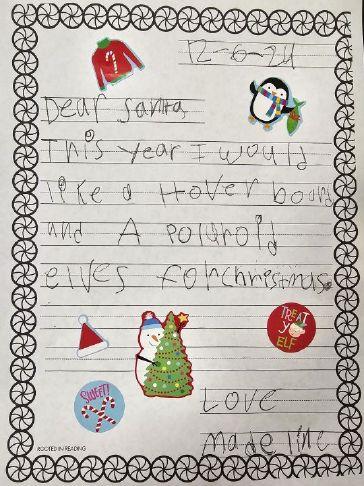 12-6-24
Dear Santa
This year I would
like a Hover board
and A Polaroid
elves for christmas.
TREAT
YO
ELF
SWEET!
Love
madeline
ROOTED IN READING